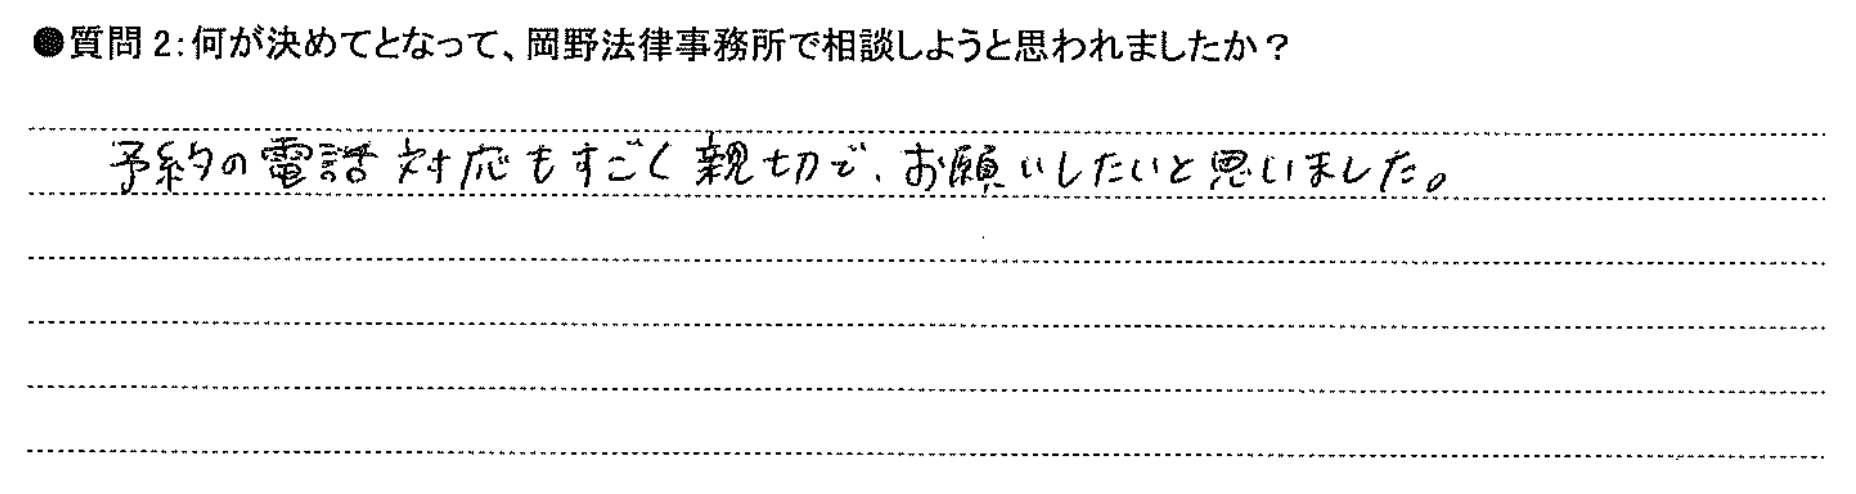 ●質問2:何が決めてとなって、岡野法律事務所で相談しようと思われましたか？
予約の電話対応もすごく親切で、お願いしたいと思いました。